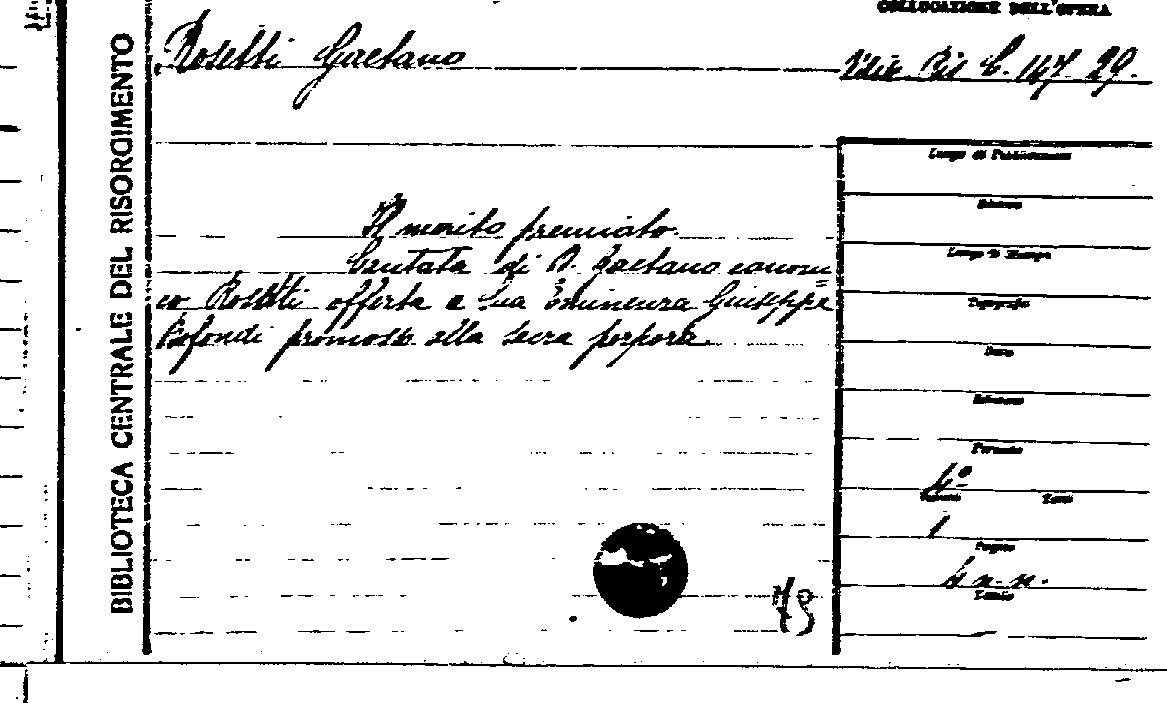 COLLOCAZIONE DELL'OPERA
Rosetti Gaetano
147. 29.
BIBLIOTECA CENTRALE DEL RISORGIMENTO
Luogo di Pubblicazione
Editore
Il merito premiato.
Luogo di Stampa
Cantata di D. Gaetano canoni=
Tipografia
co Rosetti offerta a Sua Eminenza Giuseppe
Bofondi promosso alla sacra porpora.
Data
Edizione
Formato
4º
Volumi Tomi
1
Pagine
4 n. n.
79